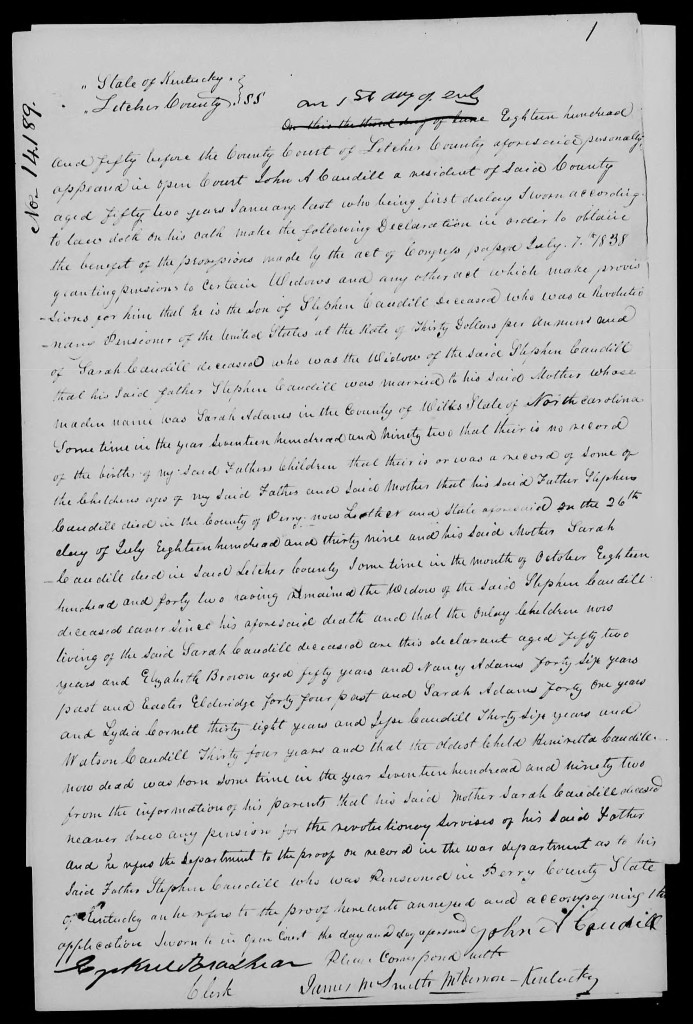 1
No 14189.
State of Kentucky
Letcher County } SS
on 1st day of July
On this the third day of June Eighteen hundread
and fifty before the County Court of Letcher County aforesaid personally
appeard in open Court John A Caudill a resident of Said County
aged Fifty two years January last who being first duley Sworn according
to law doth on his oath make the following Declaration in order to obtaine
the benefit of the provisions made by the act of Congress passed July. 7. 1838
granting pensions to Certain Widows and any other act which make provis
-sions for him that he is the Son of Stephen Caudill deceased who was a Revolutio
-nary Pensioner of the United States at the Rate of Thirty Dollars per Annum and
of Sarah Caudill deceased who was the Widow of the said Stephen Caudill
that his Said father Stephen Caudill was married to his said Mother whose
maden name was Sarah Adams in the County of Wilks State of North Carolina
Some time in the year Seventeen hundread and Ninety two that their is no record
of the births of my Said Fathers Children that their is or was a record of Some of
the Childrens ages of my Said Father and Said Mother that his said Father Stephen
Caudill died in the County of Perry now Letcher and State aforesaid on the 26th
day of July Eighteen hundread and thirty nine and his Said Mother Sarah
- Caudill died in Said Letcher County Some time in the month of October Eighteen
hundread and forty two having remained the Widow of the Said Stephen Caudill
deceased eaver Since his aforesaid death and that the onley Children now
living of the Said Sarah Caudill deceased are this declarant aged fifty two
years and Elizabeth Brown aged fifty years and Nancy Adams forty Six years
past and Easter Elderidge forty four past and Sarah Adams forty One years
and Lydia Cornett thirty eight years and Jesse Caudill Thirty Six years and
Watson Caudill Thirty four years and that the oldest Child Heniretta Caudill
now dead was born Some time in the year Seventeen hundread and ninety two
from the information of his parents that his Said Mother Sarah Caudill deceased
neaver drew any pension for the revolutionary Servises of his Said Father
and he refers the department to the proof on record in the war department as to his
Said Father Stephen Caudill who was Pensioned in Perry County State
of Kentucky an he refers to the proof hereunto annexed and accompaying this
application Sworn to in open Court the day and day aforesaid John A Caudill
Ezekiel Brashear Please Correspond with
Clerk James M Smith Kentucky